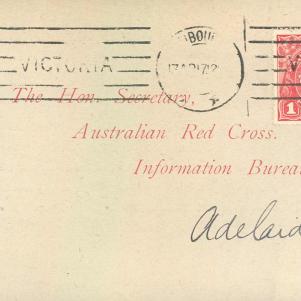 VICTORIA
The Hon. Secretary,
1
Australian Red Cross.
Information Burea
Adelaid